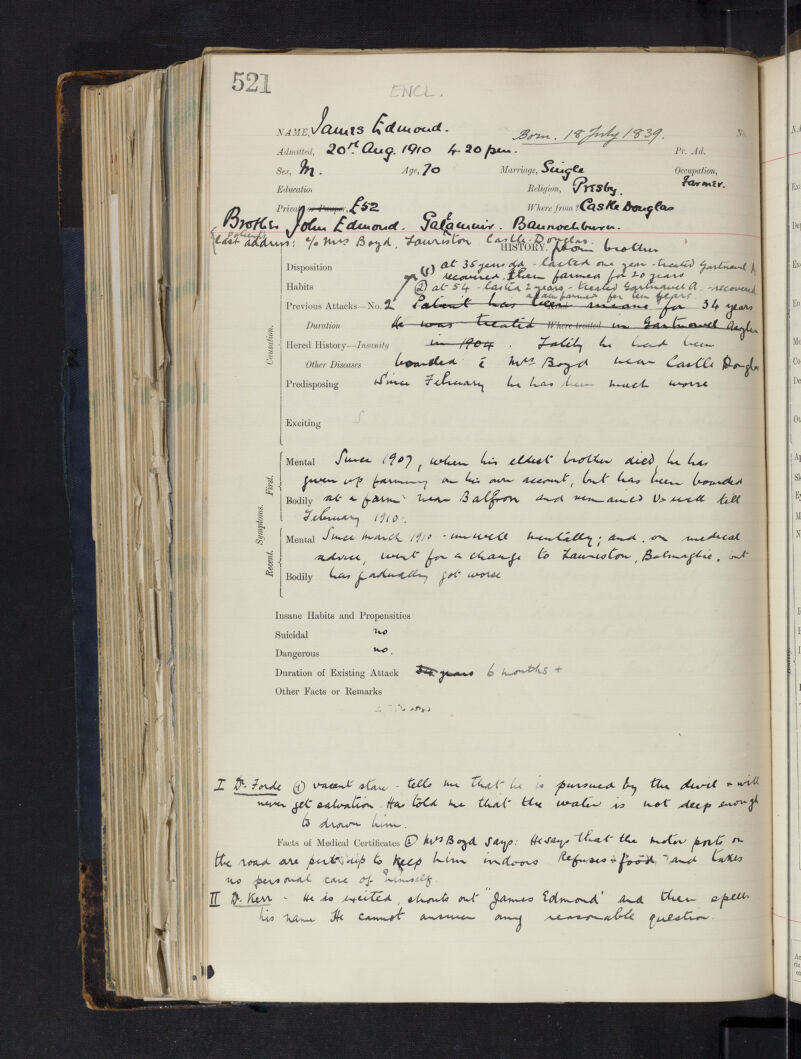 521
ENCL.
NAME, James Edmond. Born. 18 July 1839. No.
Admitted, 20th Aug. 1910 4.20 pm. Pr. Ad.
Sex, M. Age, 70 Marriage, Single Occupation,
Education Religion, Presby. Farmer.
Private or Pauper, £52 Where from? Castle Douglas
Brother John Edmond. Bannockburn.
Patients
last address: c/o Mrs Boyd, Lauriston Castle-Douglas.
HISTORY. from brother
Disposition (1) at 35 years old - lasted one year - treated Gartnavel A
recovered. Then farmed for 20 years
Habits (2) at 54 - lasted 2 years - treated Gartnavel A. - recovered
again farmed for ten years.
Previous Attacks—No. 2 Patient has been insane for 34 years
Duration He was treated Where treated in Gartnavel Asylum
Hered History—Insanity in 1904. Lately he had been
Other Diseases boarded c̄ Mrs Boyd near Castle Douglas
Predisposing Since February he has been much worse
Causation.
Exciting
Mental Since 1907, when his eldest brother died, he has
given up farming on his own account, but has been boarded
First.
Bodily at a farm near Balfron and remained well till
February 1910.
Symptoms.
Mental Since March 1910 - unwell mentally; and, on medical
advice, went for a change to Lauriston, Balmaghie, but
Recent.
Bodily has gradually got worse
Insane Habits and Propensities
Suicidal no
Dangerous no.
Duration of Existing Attack 34 years 6 months +
Other Facts or Remarks
I Dr. Forde (1) vacant stare - tells me that he is pursued by the devil & will
never get salvation. Has told me that the water is not deep enough
to drown him.
Facts of Medical Certificates (2) Mrs Boyd says: He says that the motor posts on
the road are put up to keep him indoors. Refuses food and takes
no personal care of himself.
II Dr. Kerr - He is excited, shouts out "James Edmond" and then spells
his name He cannot answer any reasonable question.